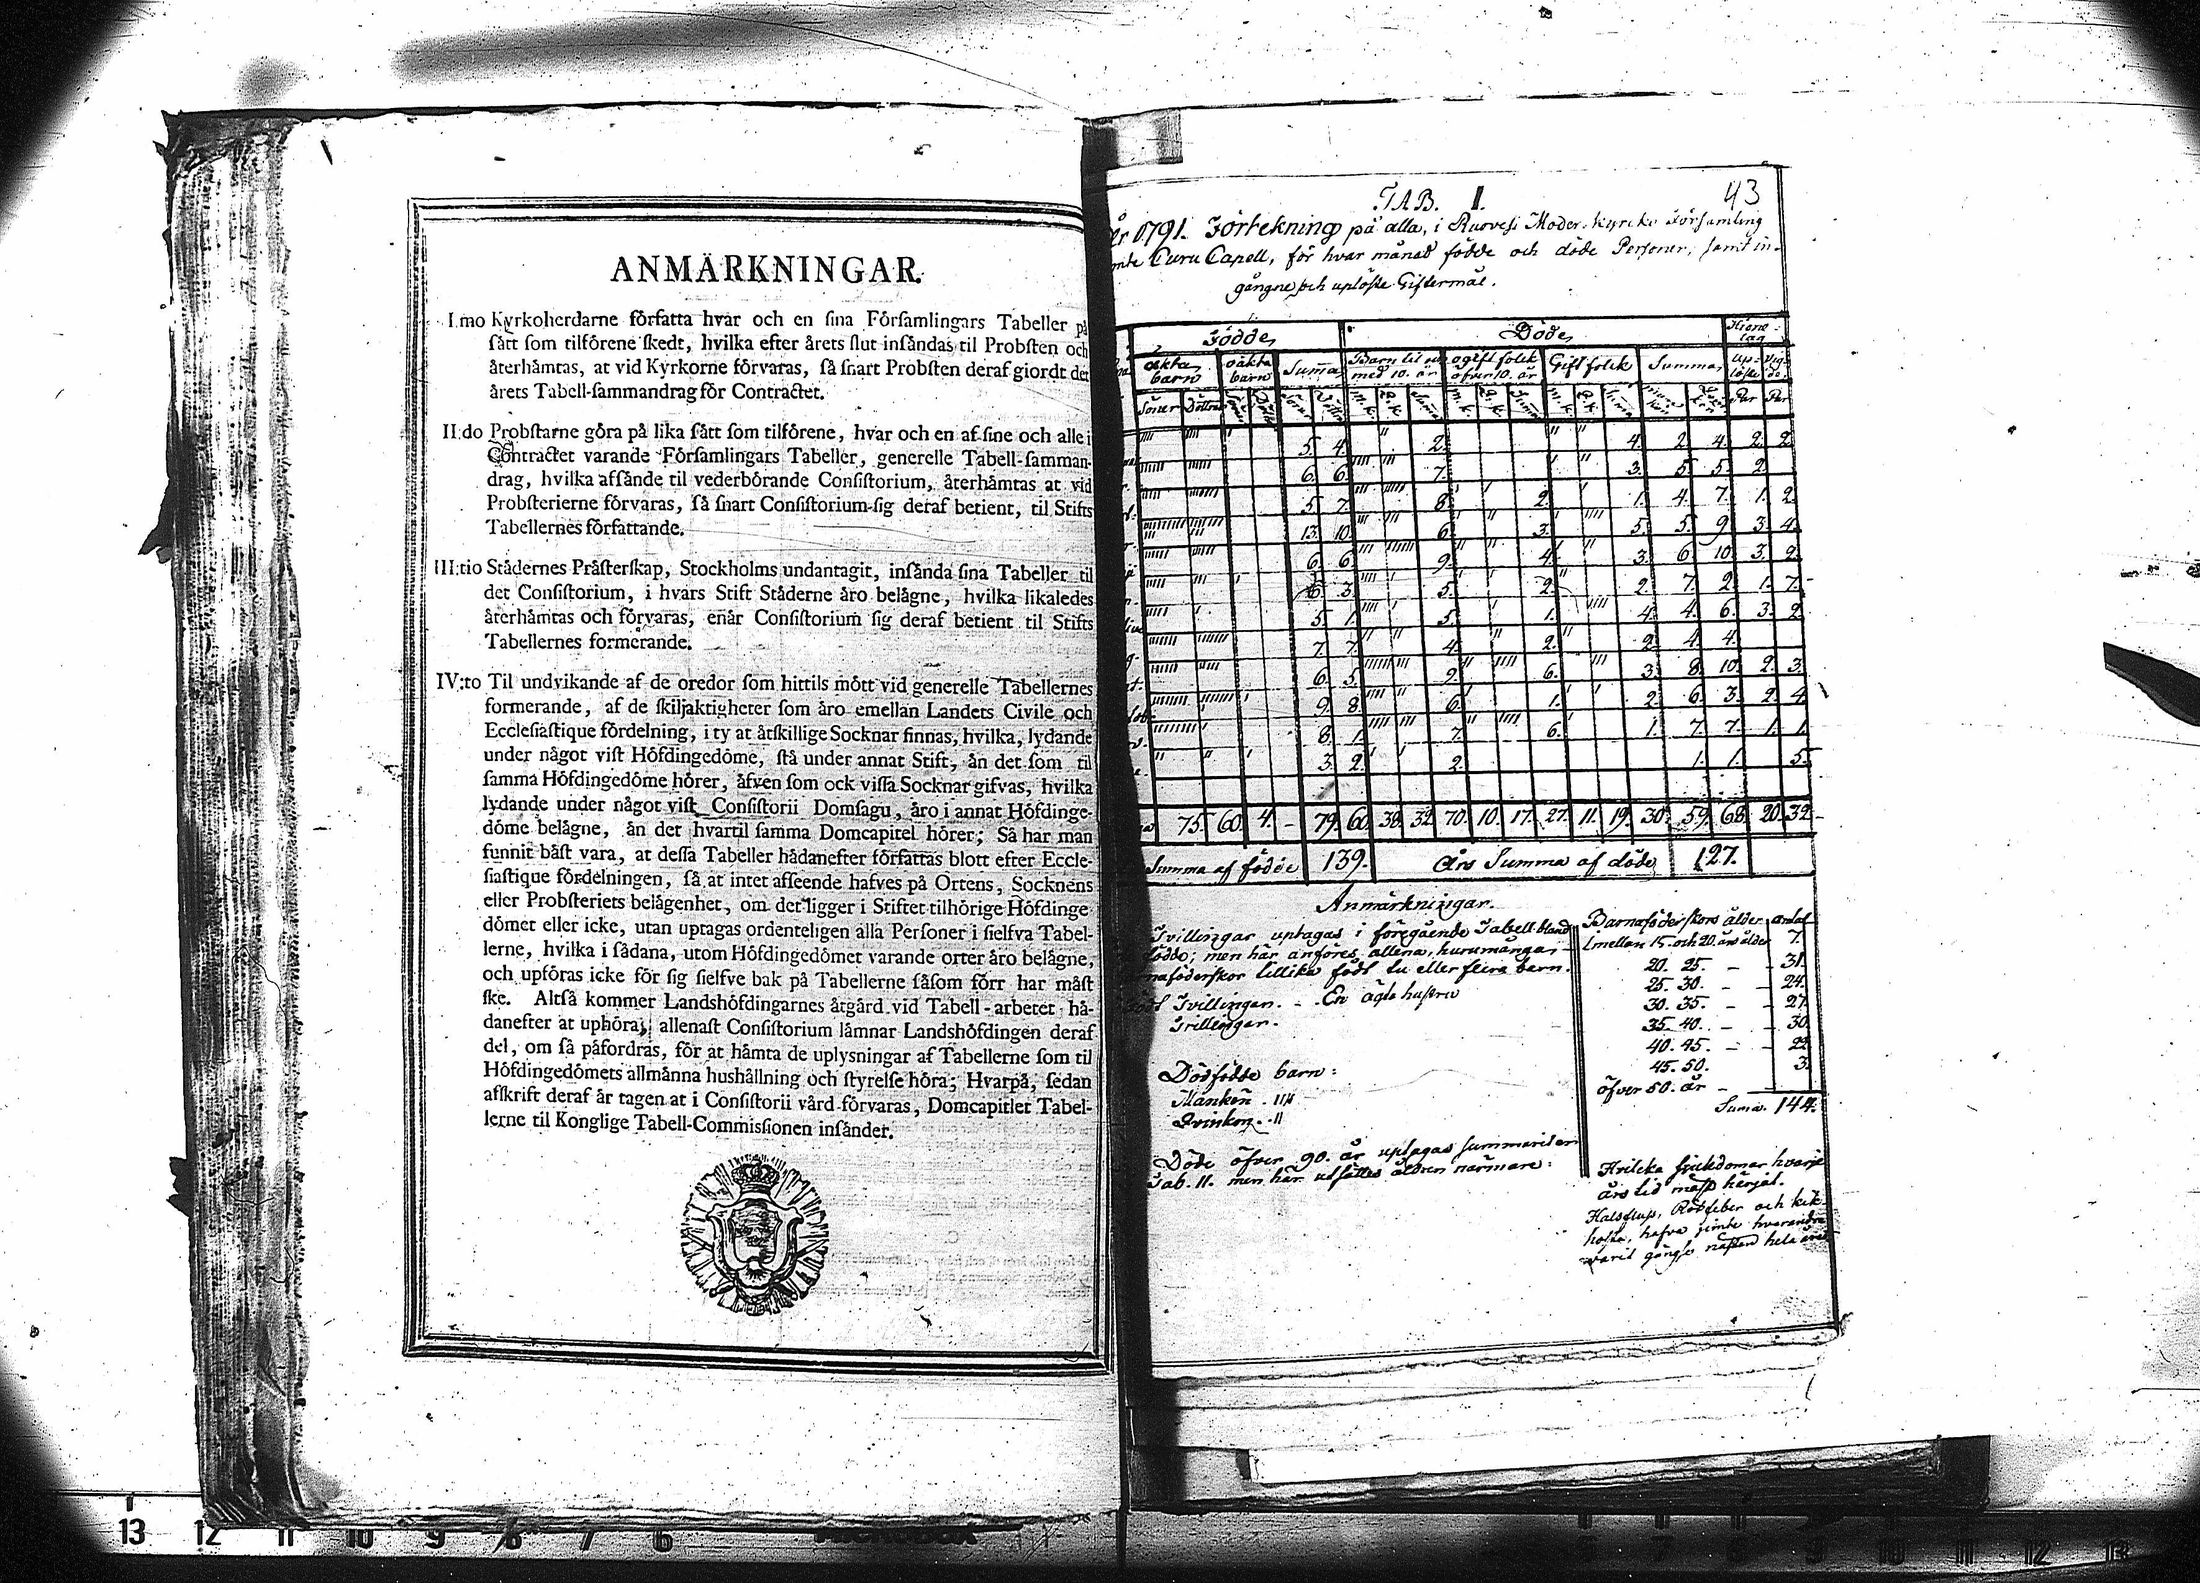 ANMÄRKNINGAR.
I.mo Kyrkoherdarne författa hvar och en sina Församlingars Tabeller på
sätt som tilförene skedt, hvilka efter årets slut insändas til Probsten och
återhämtas, at vid Kyrkorne förvaras, så snart Probsten deraf giordt det
årets Tabell-sammandrag för Contractet.
II:do Probstarne göra på lika sätt som tilförene, hvar och en af sine och alle i
Contractet varande Församlingars Tabeller, generelle Tabell-samman-
drag, hvilka affände til vederbörande Consistorium, återhämtas at vid
Probsterierne förvaras, så snart Consistorium sig deraf betient, til Stifts
Tabellernes författande.
III:tio Städernes Prästerskap, Stockholms undantagit, insända sina Tabeller til
det Consistorium, i hvars Stift Städerne äro belägne, hvilka likaledes
återhämtas och förvaras, enär Consistorium sig deraf betient til Stifts
Tabellernes formerande.
IV:to Til undvikande af de oredor som hittils mött vid generelle Tabellernes
formerande, af de skiljaktigheter som äro emellan Landets Civile och
Ecclesiastique fördelning, i ty at åtskillige Socknar finnas, hvilka, lydande
under något vist Höfdingedöme, stå under annat Stift, än det som til
samma Höfdingedöme hörer, äfven som ock vissa Socknar gifvas, hvilka
lydande under något vist Consistorii Domsagu, äro i annat Höfdinge-
döme belägne, än det hvartil samma Domcapitel hörer; Så har man
funnit bäst vara, at dessa Tabeller hädanefter författas blott efter Eccle-
siastique fördelningen, så at intet afseende hafves på Ortens, Socknens
eller Probsteriets belägenhet, om det ligger i Stiftet tilhörige Höfdinge
dömet eller icke, utan uptagas ordenteligen alla Personer i sielfva Tabel-
lerne, hvilka i sådana, utom Höfdingedömet varande orter äro belägne,
och upföras icke för sig sielfve bak på Tabellerne såsom förr har måst
ske. Altså kommer Landshöfdingarnes åtgärd vid Tabell-arbetet hä-
danefter at uphöra; allenast Consistorium lämnar Landshöfdingen deraf
del, om så påfordras, för at hämta de uplysningar af Tabellerne som til
Höfdingedömets allmänna hushållning och styrelse höra; Hvarpå, sedan
afskrift deraf är tagen at i Consistorii vård förvaras, Domcapitlet Tabel-
lerne til Konglige Tabell-Commissionen insänder.
43
TAB. I.
år 1791. Förtekning på alla, i Ruovesi Moder-Kyrko Församling
Curu Capell, för hvar månad födde och döde Personer, samt in-
gångne och uplöste Giftermål.
Födde Döde
äkta barn oäkta barn Summa Barn til och med 10. år ogift folck öfver 10. år Gift folck Summa Up-löste Vig-de
Söner Döttrar M.k. Q.k. Summa M.k. Q.k. Summa M.k. Q.k. Par Par
5. 4. 2. 4. 2. 4. 2. 2.
6. 6. 7. 3. 5. 5. 2.
5. 7. 8. 2. 1. 4. 7. 1. 2.
13. 10. 6. 3. 5. 5. 9. 3. 4.
6. 6. 9. 4. 3. 6. 10. 3. 2.
6. 3. 5. 2. 2. 7. 2. 1. 7.
5. 1. 5. 1. 4. 4. 6. 3. 2.
7. 7. 4. 2. 2. 4. 4.
6. 5. 9. 6. 3. 8. 10. 2. 3.
9. 8. 6. 1. 2. 6. 3. 2. 4.
8. 1. 7. 6. 1. 7. 7. 1. 1.
3. 2. 2. 1. 1. 5.
75. 60. 4. - 79. 60. 38. 32. 70. 10. 17. 27. 11. 19. 30. 59. 68. 20. 32.
Summa af födde 139. Års Summa af döde 127.
Anmärkningar.
Tvillingar uptagas i föregående Tabell bland
födde; men här anföres allena, huru många
barnaföderskor tillika födt tu eller flera barn.
födt Tvillingar. - En ägta hustru
Trillingar.
Dödfödde barn:
Mankön. IIII
Qvinkön. II
Döde öfver 90. år uptagas summariter
Tab. II. men här utsättes åldren närmare:
Barnaföderskors ålder antal
imellan 15. och 20. års ålder 7.
20. 25. - - 31.
25. 30. - - 24.
30. 35. - - 27.
35. 40. - - 30.
40. 45. - - 22.
45. 50. 3.
öfver 50. år - -
Suma. 144.
Hvilcka siukdomar hvarje
års tid mäst härjat.
Halsfluss, Rödfeber och kik-
hosta, hafva jämte hvarandra
varit gängse nästan hela året
13 12 11 10 9 8 7 6